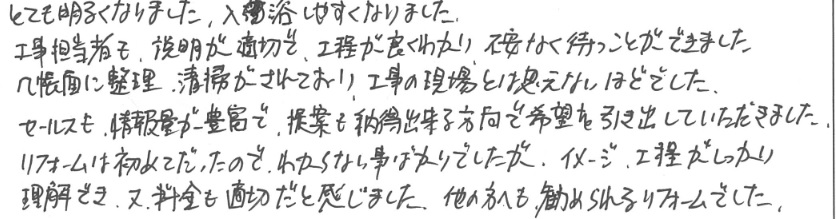 とても明るくなりました、入浴しやすくなりました。
工事担当者も、説明が適切で、工程が良くわかり 不安なく待つことができました
几帳面に整理、清掃がされており、工事の現場とは思えないほどでした。
セールスも、情報量が豊富で、提案も納得出来る方向で希望を引き出していただきました。
リフォームは初めてだったので、わからない事ばかりでしたが、イメージ、工程がしっかり
理解でき、又、料金も適切だと感じました。他の方へも勧められるリフォームでした。